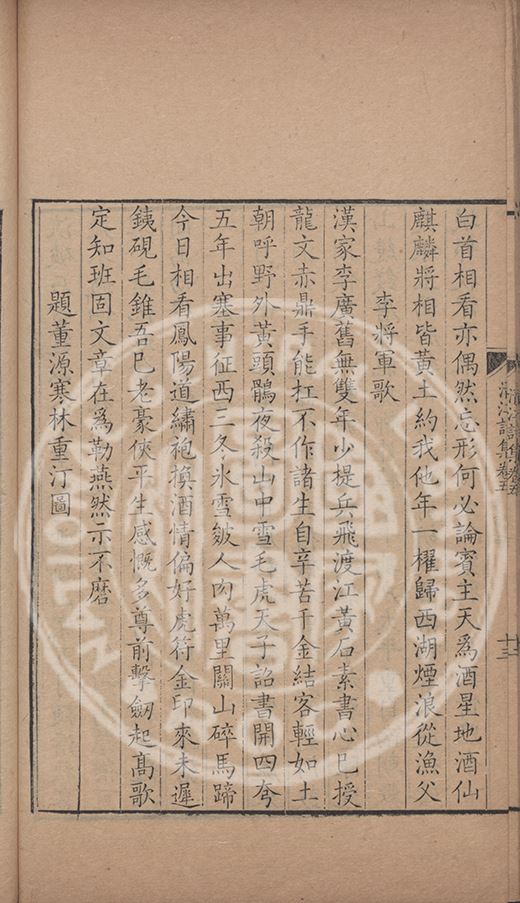 白首相看亦偶然忘形何必論賓主天爲酒星地酒仙
麒麟將相皆黃土約我他年一櫂歸西湖煙浪從漁父
李將軍歌
漢家李廣舊無雙年少提兵飛渡江黃石素書心已授
龍文赤鼎手能扛不作諸生自辛苦千金結客輕如土
朝呼野外黃頭鶻夜殺山中雪毛虎天子詔書開四夸
五年出塞事征西三冬氷雪皴人肉萬里關山碎馬蹄
今日相看鳳陽道繡袍換酒情偏好虎符金印來未遲
銕硯毛錐吾巳老豪俠平生感慨多尊前擊劒起髙歌
定知班固文章在爲勒燕然示不磨
題董源寒林重汀圖
卷五
十三